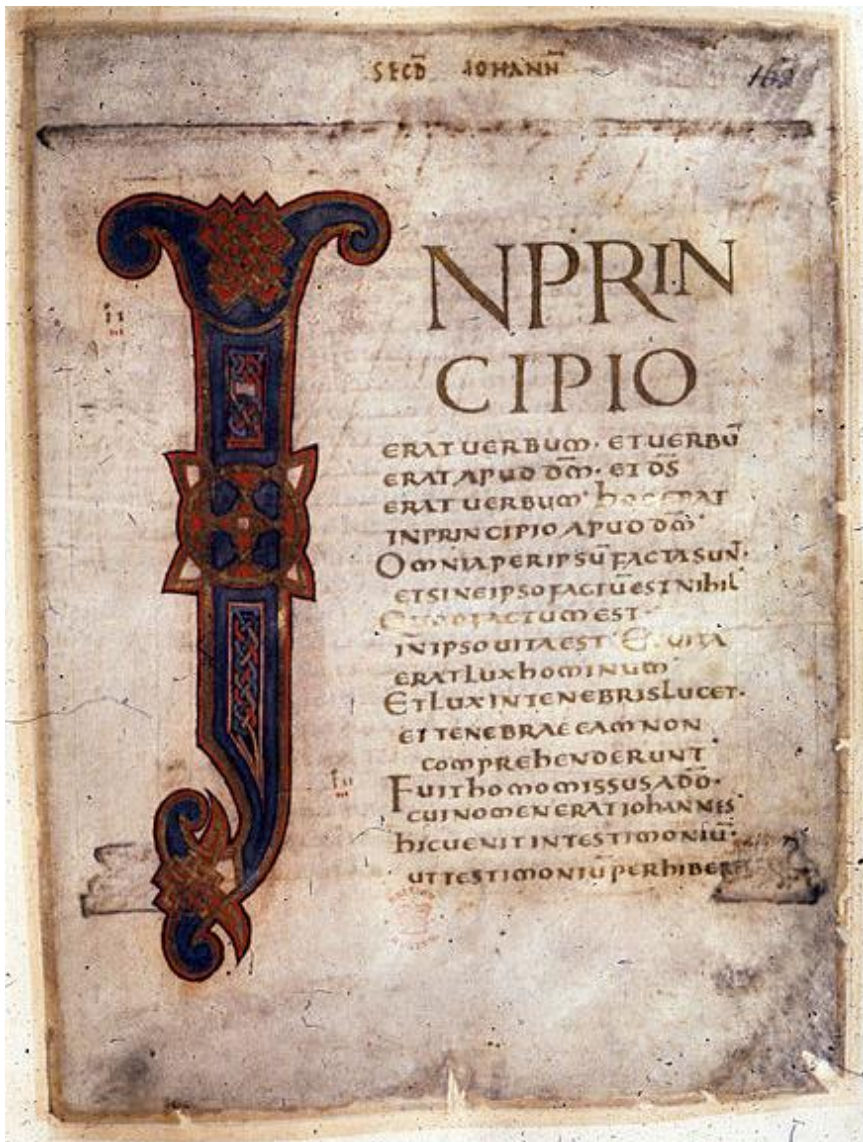 SECD̄ IOHANN̄
INPRIN
CIPIO
ERATUERBUM· ETUERBŪ
ERAT APUD DM̄· ET DS̄
ERAT UERBUM· hOC ERAT
INPRINCIPIO APUD DM̄·
OMNIA PER IPSŪ FACTA SUN̄·
ET SINE IPSO FACTŪ EST NIhIL
QUOD FACTUM EST
IN IPSO UITA EST· ET UITA
ERAT LUX hOMINUM·
ET LUX IN TENEBRIS LUCET·
ET TENEBRAE EAM NON
COMPREhENDERUNT
FUIT hOMO MISSUS A DŌ·
CUI NOMEN ERAT IOhANNES
hIC UENIT IN TESTIMONIŪ·
UT TESTIMONIŪ PERhIBER